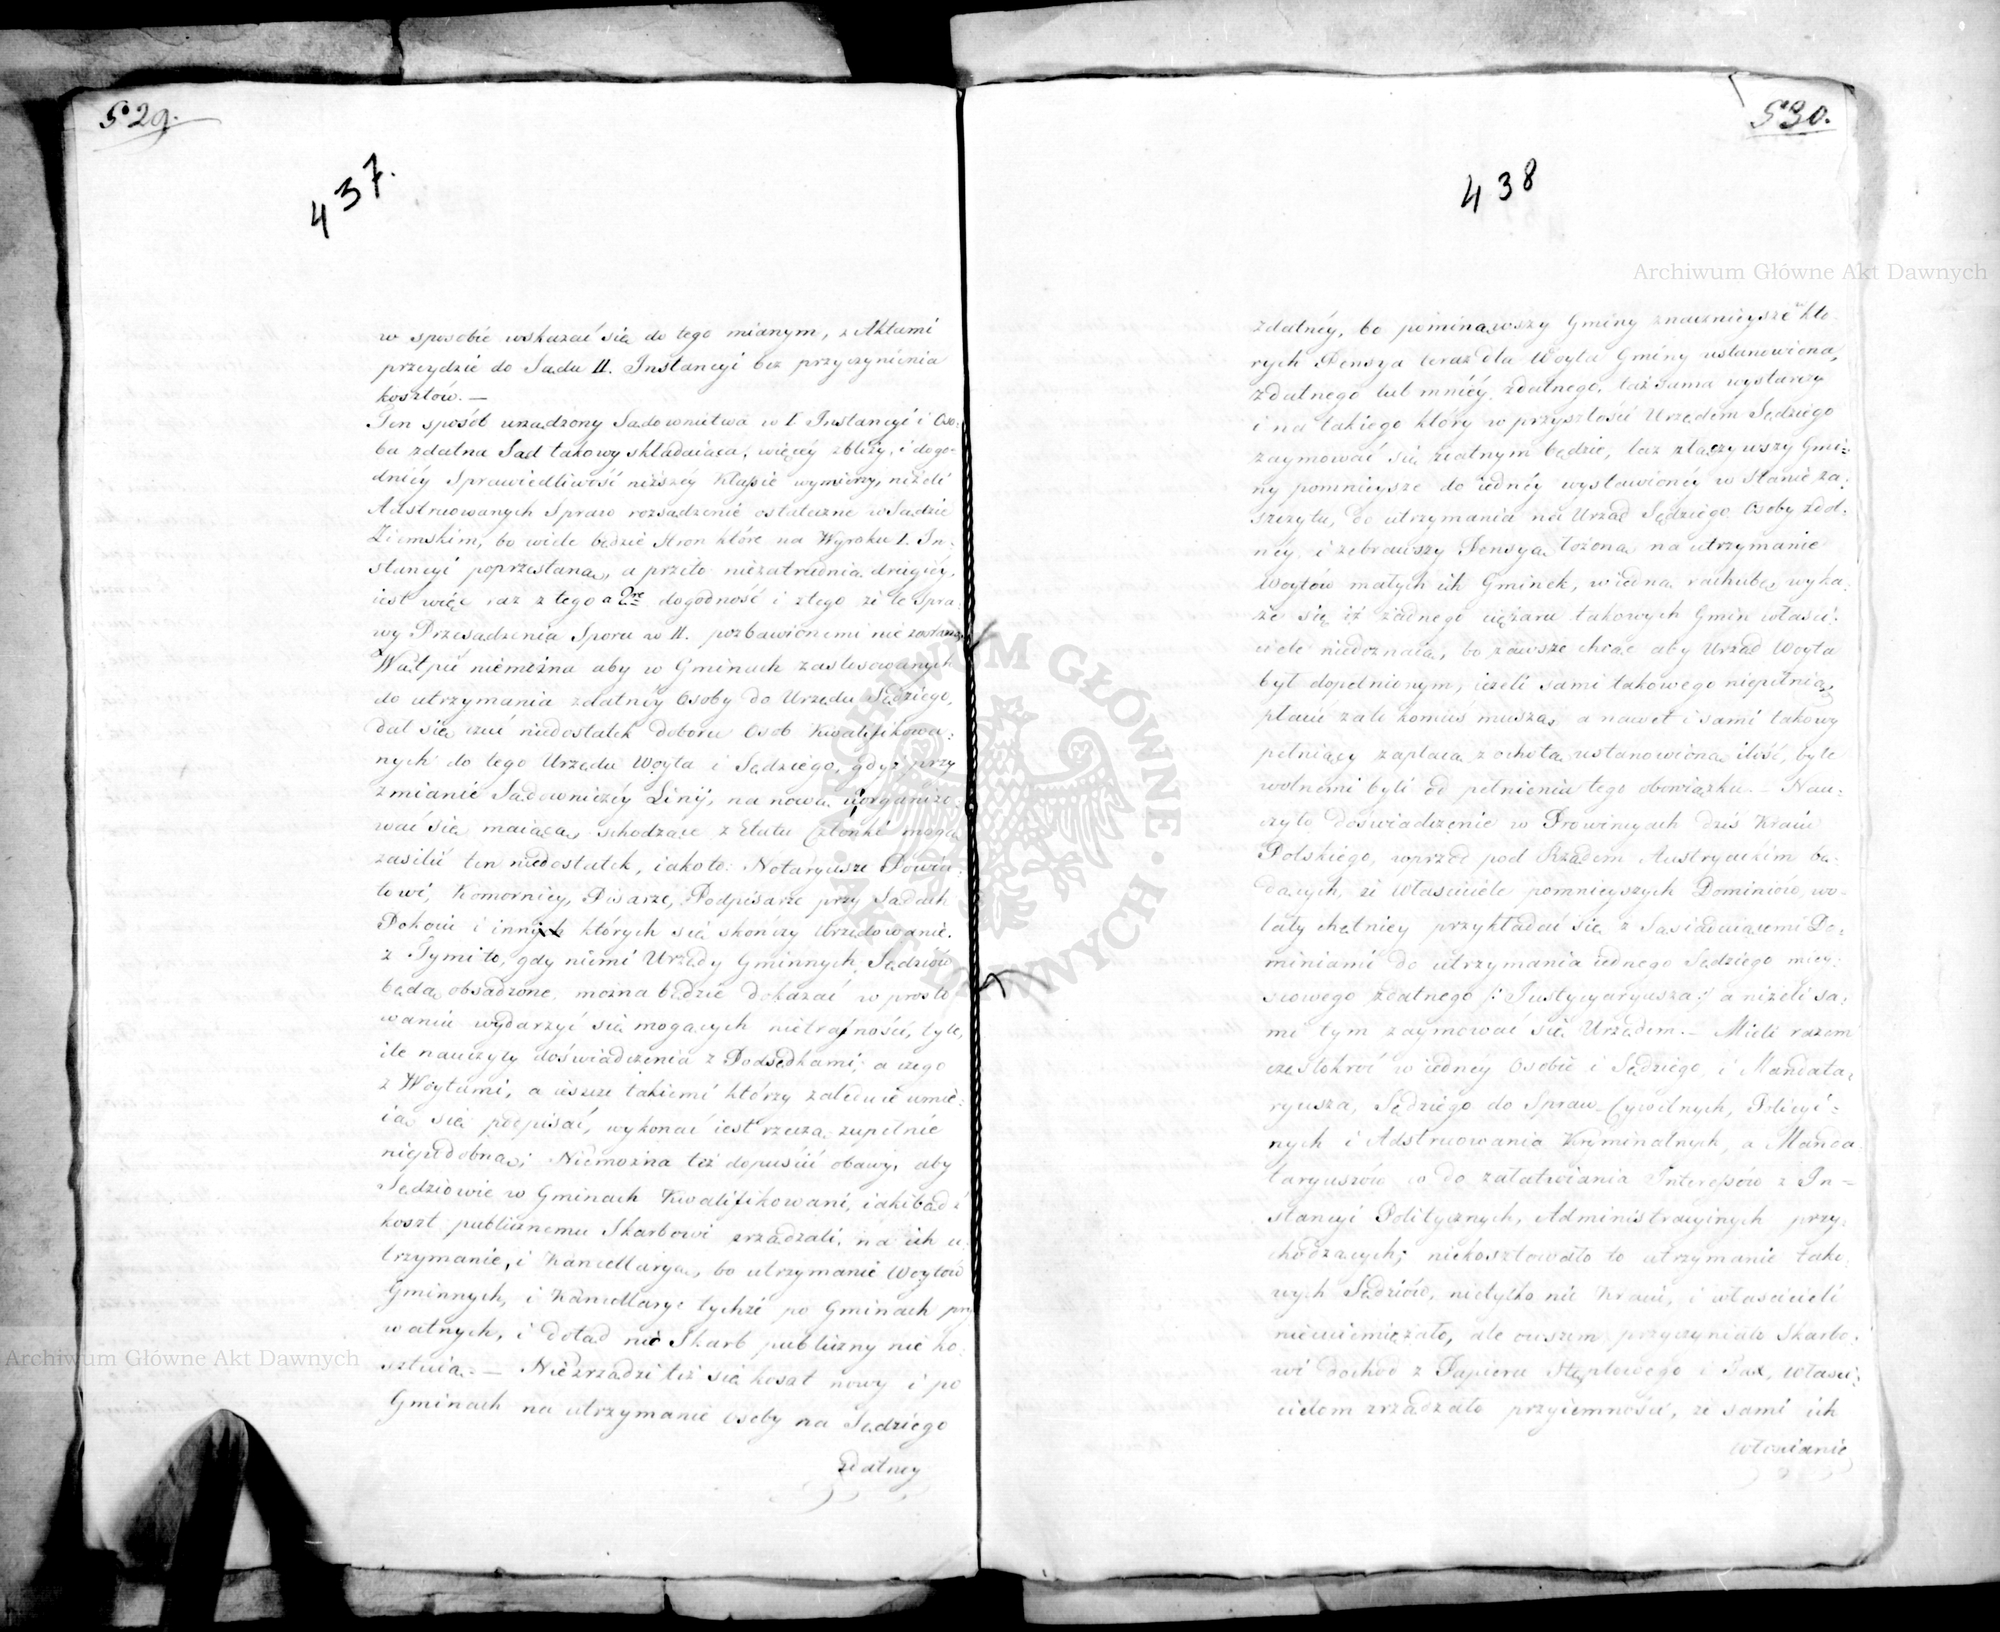 529.
437.
w sposobie wskazać się do tego mianym, z Aktami
przeydzie do Sadu II. Instancyi bez przyczynienia
kosztów. —
Ten sposób urządzony Sądownictwa w I Instancyi i Oso-
ba zdatna Sąd takowy składaiąca, więcéy zbliży, i dogo-
dniéy Sprawiedliwość niższéy Klassie wymierzy, niżeli
Adstruowanych Spraw rozsądzenie ostateczne w Sądzie
Ziemskim, bo wiele będzie stron które na Wyroku I. In-
stancyi poprzestaną, a przeto niezatrudnią drugiéy,
iest więc raz z tego a dogodność i z tego że te Spra-
wy Przesądzenia Sporu w II. pozbawionemi nie zostaną
Wątpić niemożna aby w Gminach zastosowanych
do utrzymania zdatnéy Osoby do Urzędu Sędziego,
dał się czuć niedostatek doboru Osob Kwalifikowa-
nych do tego Urzędu Woyta i Sędziego, gdyż przy
zmianie Sądowniczéy Linij, na nowo uorganizo-
wać się maiącą schodzące z Etatu Członki mogą
zasilić ten niedostatek, iako to: Notaryusze Powia-
towi, Komornicy, Pisarze, Podpisarze przy Sądach
Pokoiu i innych których się skończy Urzędowanie.
z Tymi to, gdy niemi Urzędy Gminnych Sędziów
będą obsadzone, można będzie dokazać w prosto
waniu wydarzyć się mogących nietrafności, tyle,
ile nauczyły doświadczenia z Podsędkami; a czego
z Woytami, a ieszcze takiemi którzy zaledwie umie-
ią się podpisać, wykonać iest rzeczą zupełnie
niepodobną; Niemożna też dopuścić obawy, aby
Sędziowie w Gminach Kwalifikowani, iakibądź
koszt publicznemu Skarbowi zrządzali, na ich u-
trzymanie, i Kancellaryą, bo utrzymanie Woytów
Gminnych, i Kancellarye tychże po Gminach pry
watnych, i dotąd nic Skarb publiczny nie ko-
sztuią. — Niezrządzi też się koszt nowy i po
Gminach na utrzymanie osoby na Sędziego
zdatney
530.
438
Archiwum Główne Akt Dawnych
zdatnéy, bo pominąwszy Gminy znacznieysze któ-
rych Pensya teraz dla Woyta Gminy ustanowiona,
zdatnego lub mniéy zdatnego, taż sama wystarczy
i na takiego który w przyszłości Urzędem Sędziego
zaymować się zdatnym będzie, tak złączywszy Gmi-
ny pomnieysze do iednéy wystawionéy w Stanie za-
szczytu, do utrzymania na Urząd Sędziego Osoby zdol-
néy, i zebrawszy Pensyą łożoną na utrzymanie
Woytów małych ich Gminek, w iedną rachubę, wyka-
że się iż żadnego ciężaru takowych Gmin właści-
ciele niedoznaią, bo zawsze chcąc aby Urząd Woyta
był dopełnionym, ieżeli sami takowego niepełnią,
płacić zato komuś muszą, a nawet i sami takowy
pełniący zapłacą z ochotą ustanowioną ilość, byle
wolnemi byli od pełnienia tego obowiązku. — Nau-
czyło doświadczenie w Prowincyach dziś Kraiu
Polskiego, wprzód pod Rządem Austryackim bę-
dących, że Właściciele pomnieyszych Dominiów, wo-
lały chętniey przykładać się z Sąsiadaiącemi Do-
miniami do utrzymania iednego Sędziego miey-
scowego zdatnego /: Justycyaryusza :/ a niżeli sa-
mi tym zaymować się Urzędem. — Mieli razem
częstokroć w iedney Osobie i Sędziego, i Mandata-
ryusza, Sędziego do Spraw Cywilnych, Policyi-
nych i Adstruowania Kryminalnych, a Manda-
taryuszów do załatwiania Interessów z In-
stancyi Politycznych, Administracyinych przy-
chodzących; niekosztowało to utrzymanie tako-
wych Sędziów, nietylko nic Kraiu, i właścicieli
nieuciemiężało, ale owszem przyczyniało Skarbo-
wi dochód z Papieru Stęplowego i Tax, Właści-
cielom zrządzało przyiemność, że sami ich
Włościanie
Archiwum Główne Akt Dawnych
ARCHIWUM GŁÓWNE AKT DAWNYCH